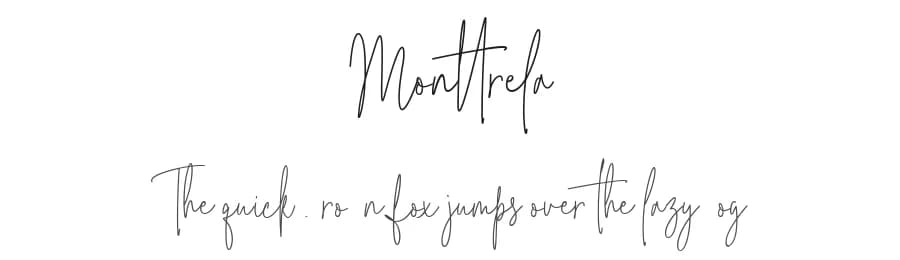 Monttrela
The quick . ro n fox jumps over the lazy og